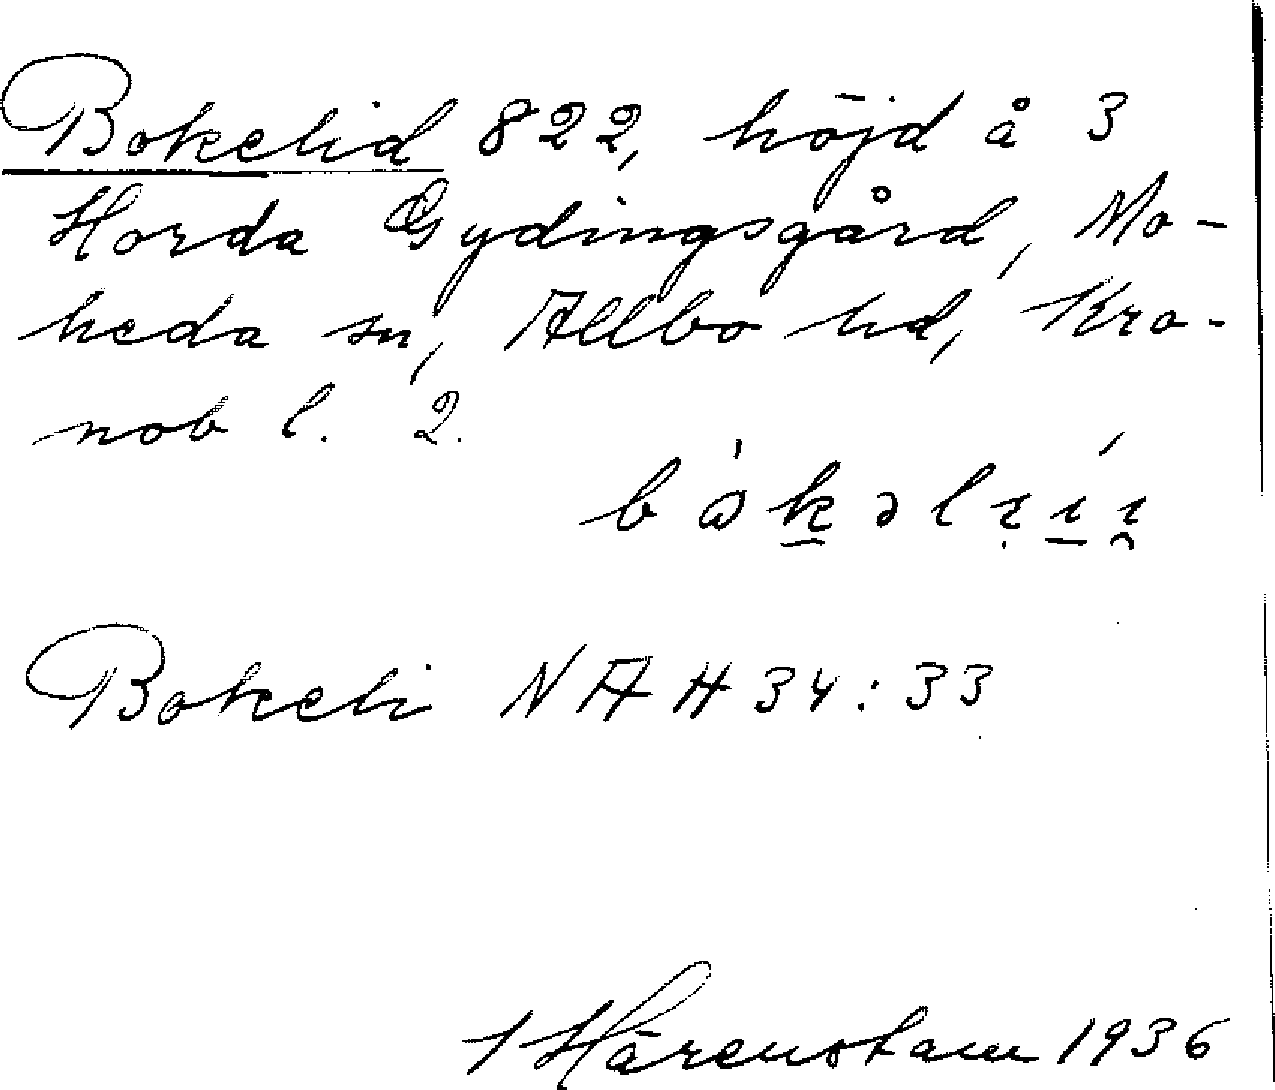 Bokelid 822, höjd å 3
Horda Gydingsgård, Mo-
heda sn, Allbo hd, Kro-
nob l. 2.
Bokeli NAH 34:33
Härenstam 1936